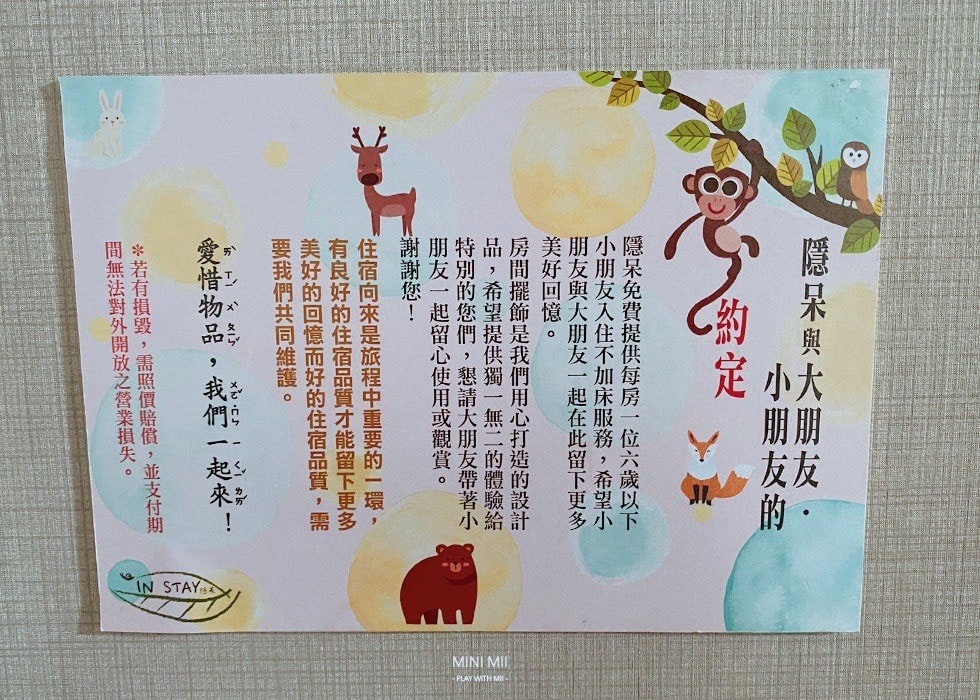 隱呆與大朋友．
小朋友的
約定
隱呆免費提供每房一位六歲以下
小朋友入住不加床服務，希望小
朋友與大朋友一起在此留下更多
美好回憶。
房間擺飾是我們用心打造的設計
品，希望提供獨一無二的體驗給
特別的您們，懇請大朋友帶著小
朋友一起留心使用或觀賞。
謝謝您！
住宿向來是旅程中重要的一環，
有良好的住宿品質才能留下更多
美好的回憶而好的住宿品質，需
要我們共同維護。
愛惜物品，我們一起來！
ㄞˋ ㄒㄧˊ ㄨˋ ㄆㄧㄣˇ ㄨㄛˇ ㄇㄣ˙ ㄧ ㄑㄧˇ ㄌㄞˊ
＊若有損毀，需照價賠償，並支付期
間無法對外開放之營業損失。
IN STAY
MINI MII
- PLAY WITH MII -